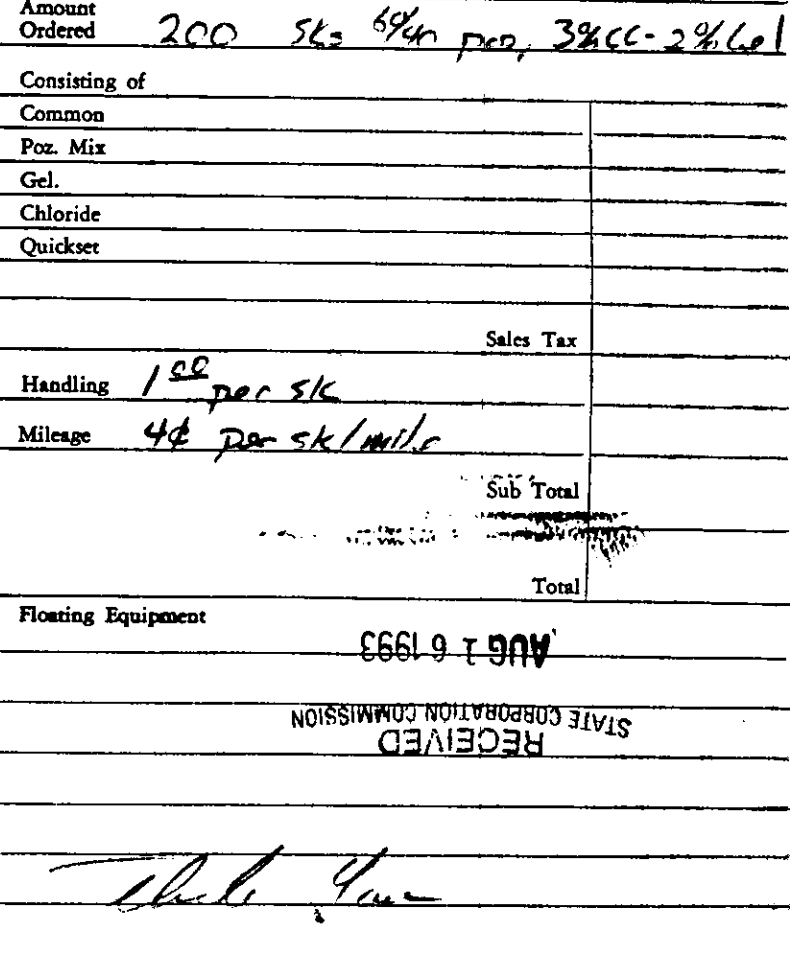 Amount
Ordered 200 sks 60/40 poz, 3%CC-2%Gel
Consisting of
Common
Poz. Mix
Gel.
Chloride
Quickset
Sales Tax
Handling 1 00 per sk
Mileage 4¢ per sk/mile
Sub Total
Total
Floating Equipment
AUG 1 6 1993
STATE CORPORATION COMMISSION
RECEIVED
Thank You